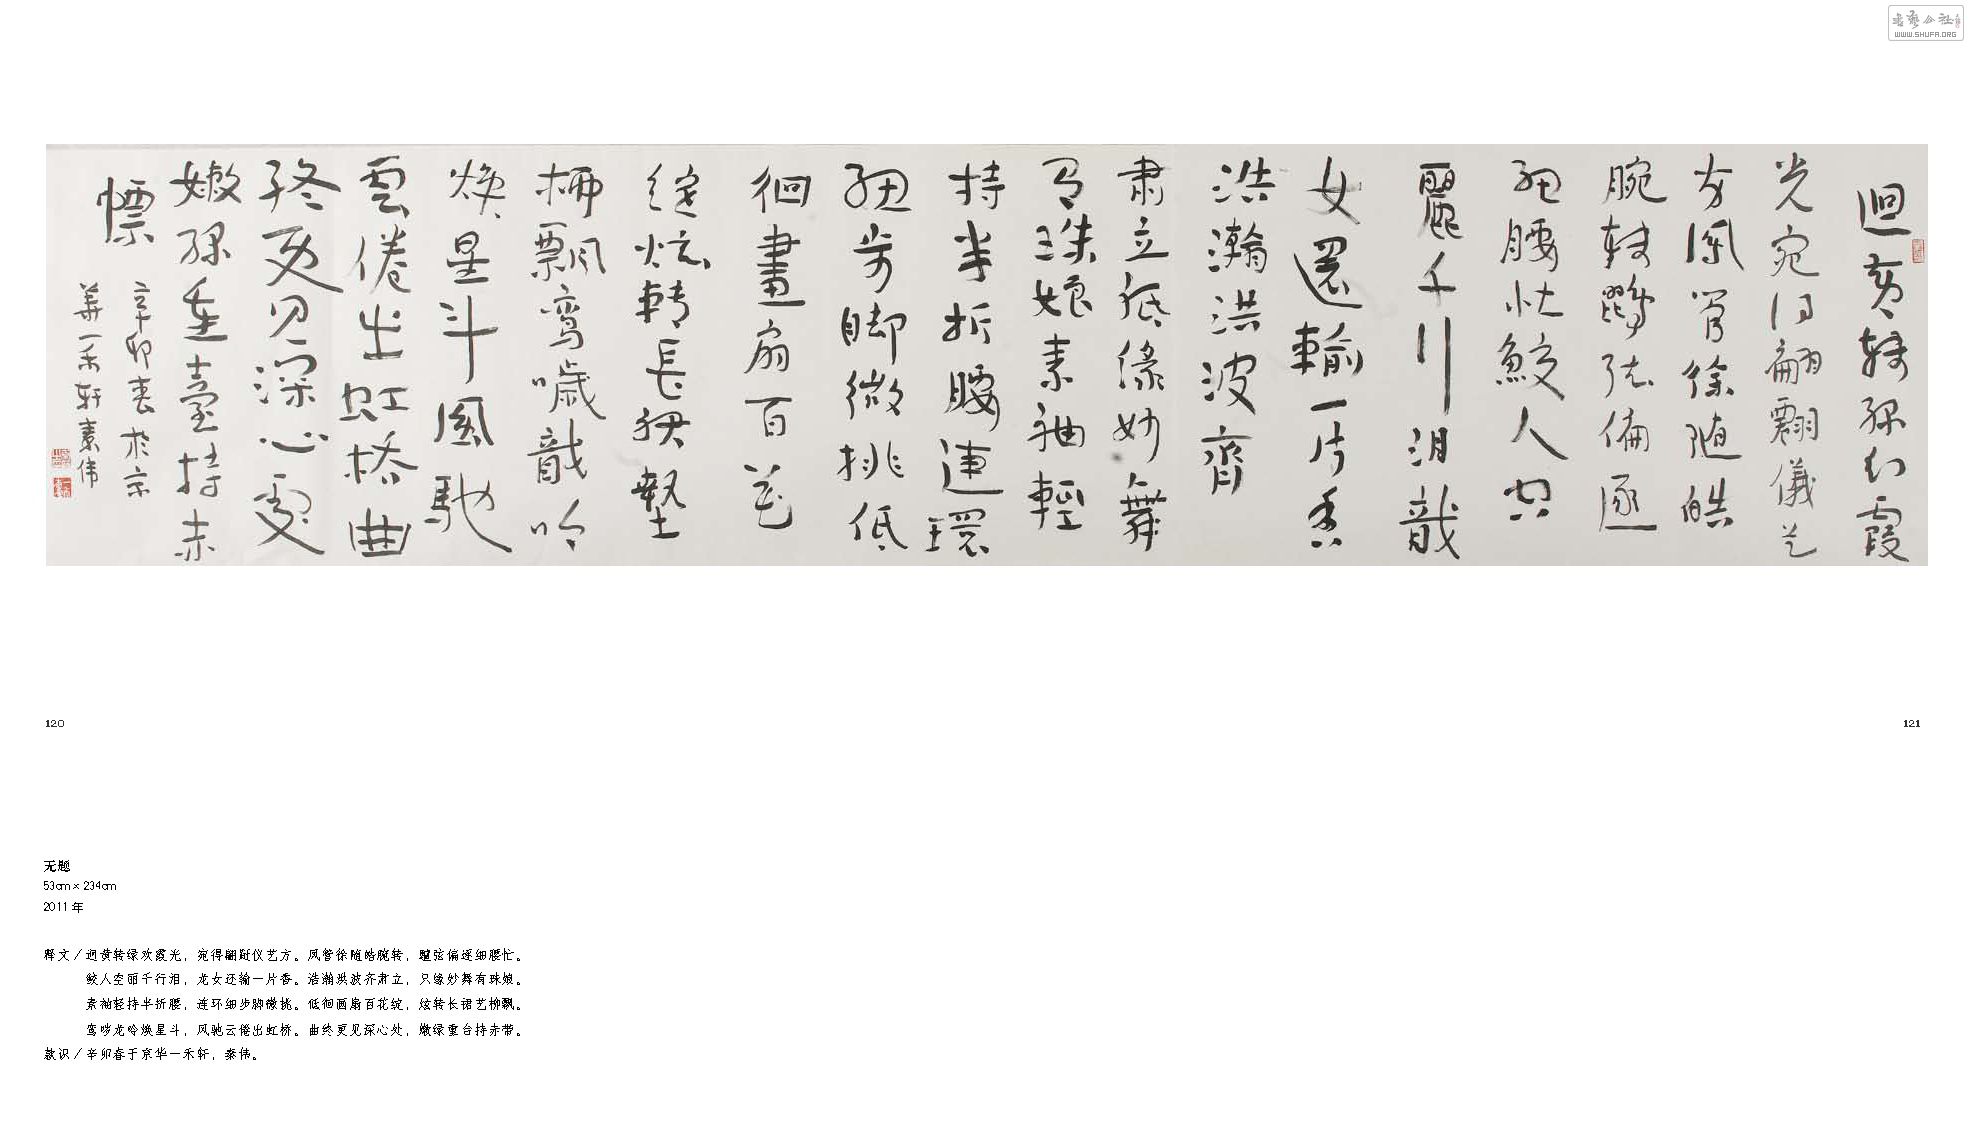 WWW.SHUFA.ORG
迴黄轉緑幻霞
光宛得翩翾儀艺
方鳳管徐随皓
腕轉鸎弦偏逐
細腰忙鮫人空
麗千行泪龍
女還輸一片香
浩瀚洪波齊
肅立祗缘妙舞
有珠娘素袖輕
持半折腰連環
細步脚微挑低
徊畫扇百花
绽炫轉長裙艺
柳飄鸾哕龍吟
焕星斗風馳
雲倦出虹橋曲
終更見深心處
嫩緑重臺持赤
幖
辛卯春於京
華一禾轩素伟
120
121
无题
53cm × 234cm
2011 年
释文／迴黄转绿欢霞光，宛得翩跹仪艺方。凤管徐随皓腕转，鸎弦偏逐细腰忙。
鲛人空丽千行泪，龙女还输一片香。浩瀚洪波齐肃立，只缘妙舞有珠娘。
素袖轻持半折腰，连环细步脚微挑。低徊画扇百花绽，炫转长裙艺柳飘。
鸾哕龙吟焕星斗，风驰云倦出虹桥。曲终更见深心处，嫩绿重台持赤带。
款识／辛卯春于京华一禾轩，素伟。